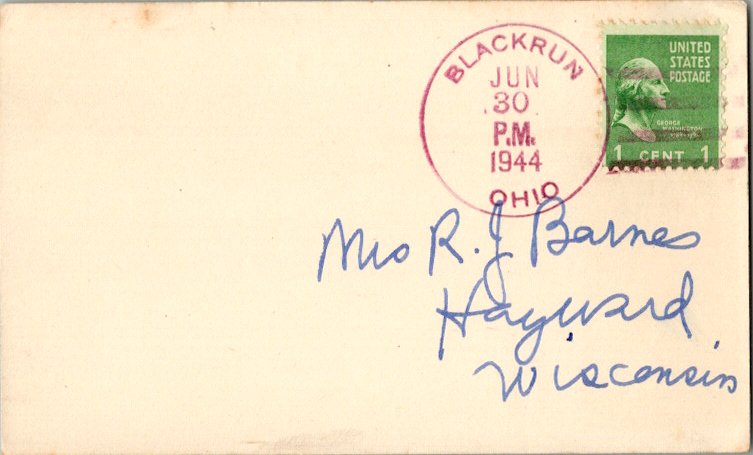 BLACKRUN
JUN
30
P.M.
1944
OHIO
UNITED
STATES
POSTAGE
GEORGE
WASHINGTON
1 CENT 1
Mrs R. J Barnes
Hayward,
Wisconsin